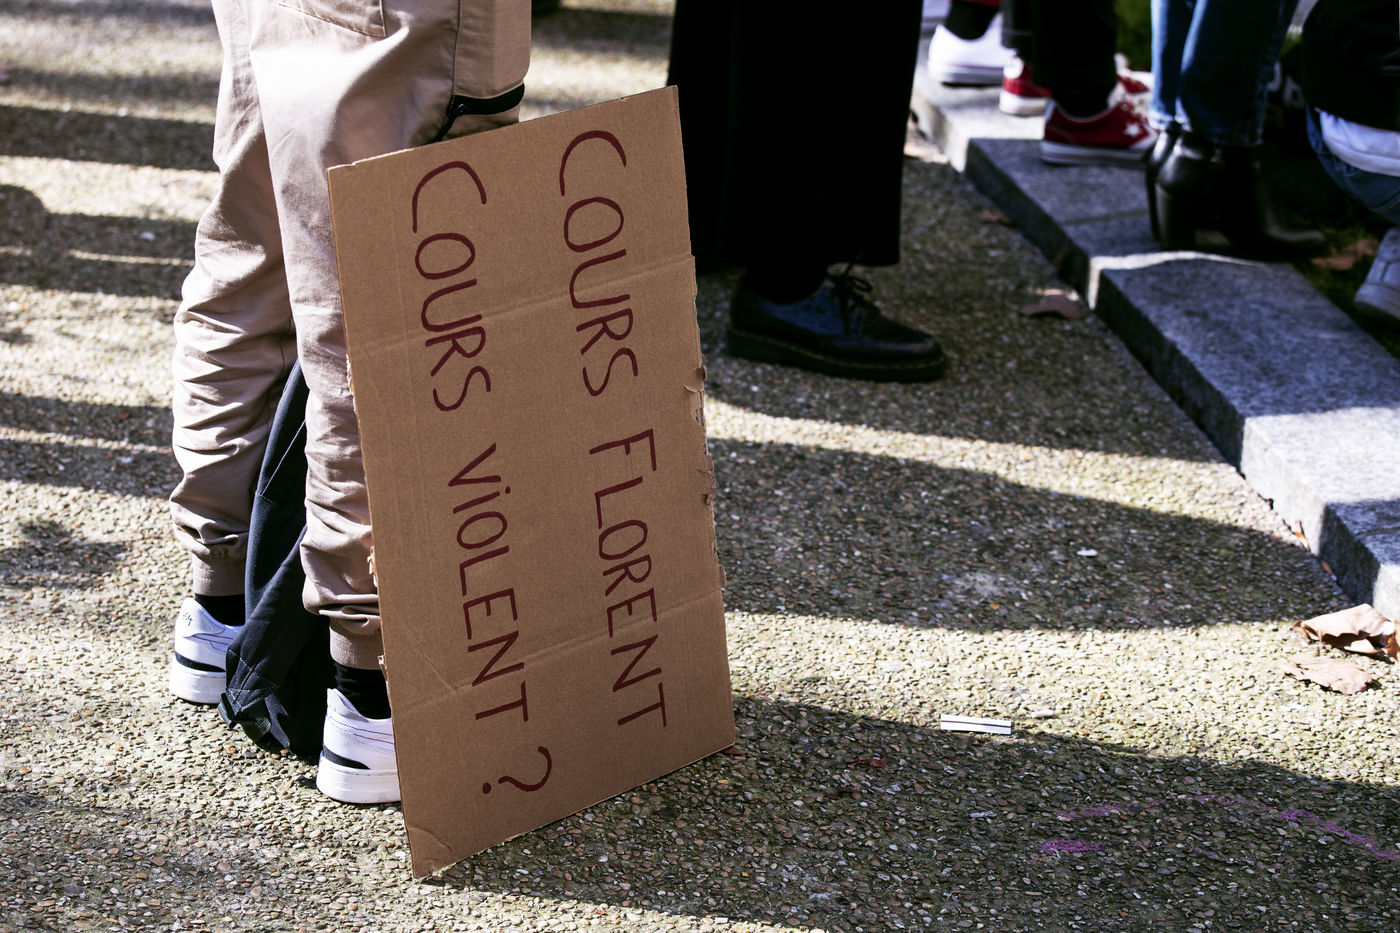 COURS FLORENT
COURS ViOLENT ?